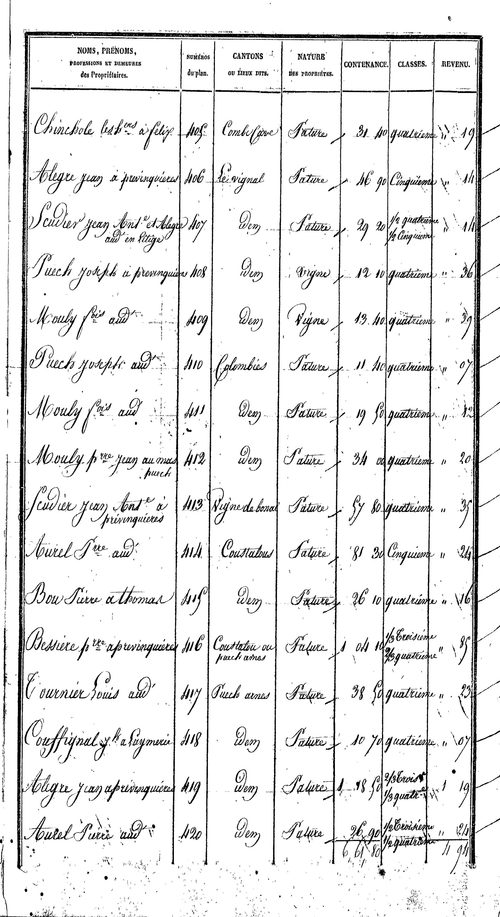 NOMS, PRÉNOMS, PROFESSIONS ET DEMEURES des Propriétaires. NUMÉROS du plan. CANTONS OU LIEUX DITS. NATURE DES PROPRIÉTÉS. CONTENANCE. CLASSES. REVENU.
Chinchole les hers à felix 405 Combe Pature 31 40 quatrième " 19
Alegre jean à previnquieres 406 Le vignal Pature 46 90 Cinquième " 14
Scudier jean Ante et Alegre 407 idem Pature 29 20 1/2 quatrième " 14
aud en litige 1/2 Cinquieme
Puech joseph à prevenquier 408 idem Vigne 12 10 quatrième " 36
Mouly fois aud 409 idem Vigne 13 40 quatrième " 39
Puech joseph aud 410 Colombiés Pature 11 40 quatrième " 07
Mouly fois aud 411 idem Pature 19 50 quatrième " 12
Mouly pre jean au mas 412 idem Pature 34 00 quatrième " 20
puech
Scudier jean Ante à 413 Vigne de bonal Pature 57 80 quatrième " 35
privinquières
Aurel Pre aud 414 Coustatous Pature 81 30 Cinquieme " 24
Bou Pierre a thomas 415 idem Pature 26 10 quatrième " 16
Bessiere pre aprevinquières 416 Coustatou ou Pature 1 04 10 1/3 Troisieme " 85
puech arnes 2/3 quatrieme
Tournier Louis aud 417 Puech arnes Pature 38 50 quatrième " 23
Couffignal a Laymerie 418 idem Pature 10 70 quatrieme " 07
Alegre jean aprevinquières 419 idem Pature 1 18 50 2/3 Trois 1 19
1/3 quatr
Aurel Pierre aud 420 idem Pature 26 90 1/2 Troisieme " 24
1/2 quatrieme
6 61 80 4 94